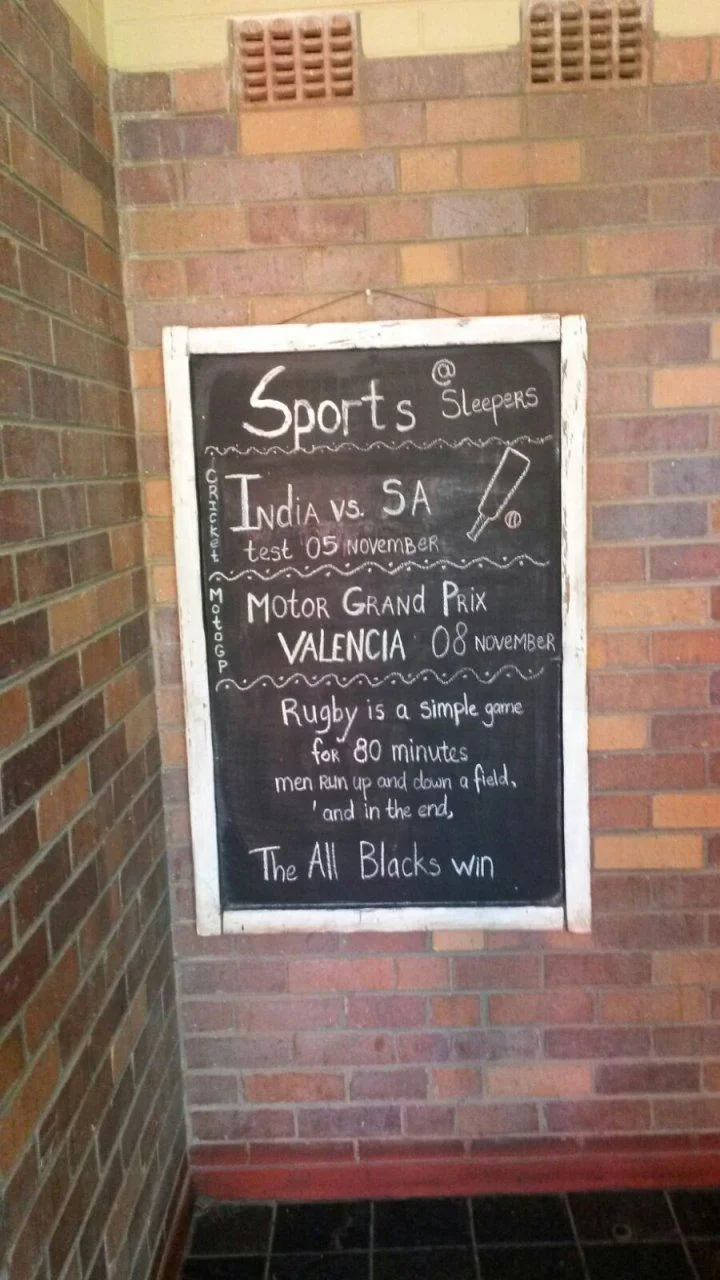 Sports @ Sleepers
Cricket
India vs. SA
test 05 November
MotoGP
Motor Grand Prix
VALENCIA 08 November
Rugby is a simple game
for 80 minutes
men run up and down a field,
'and in the end,
The All Blacks win